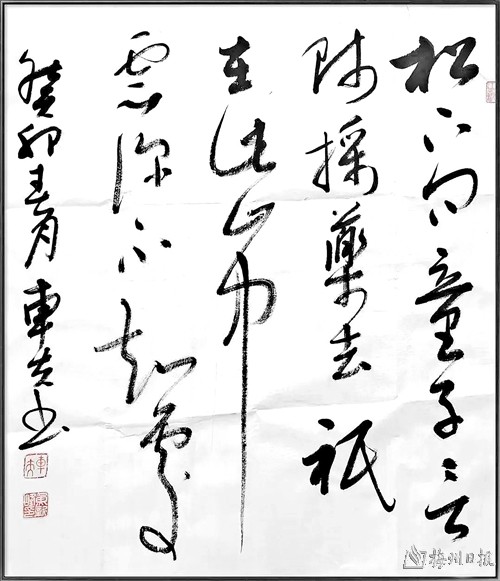 松下问童子言
师採藥去祇
在此山中
雲深不知處
癸卯春月
梅州日报